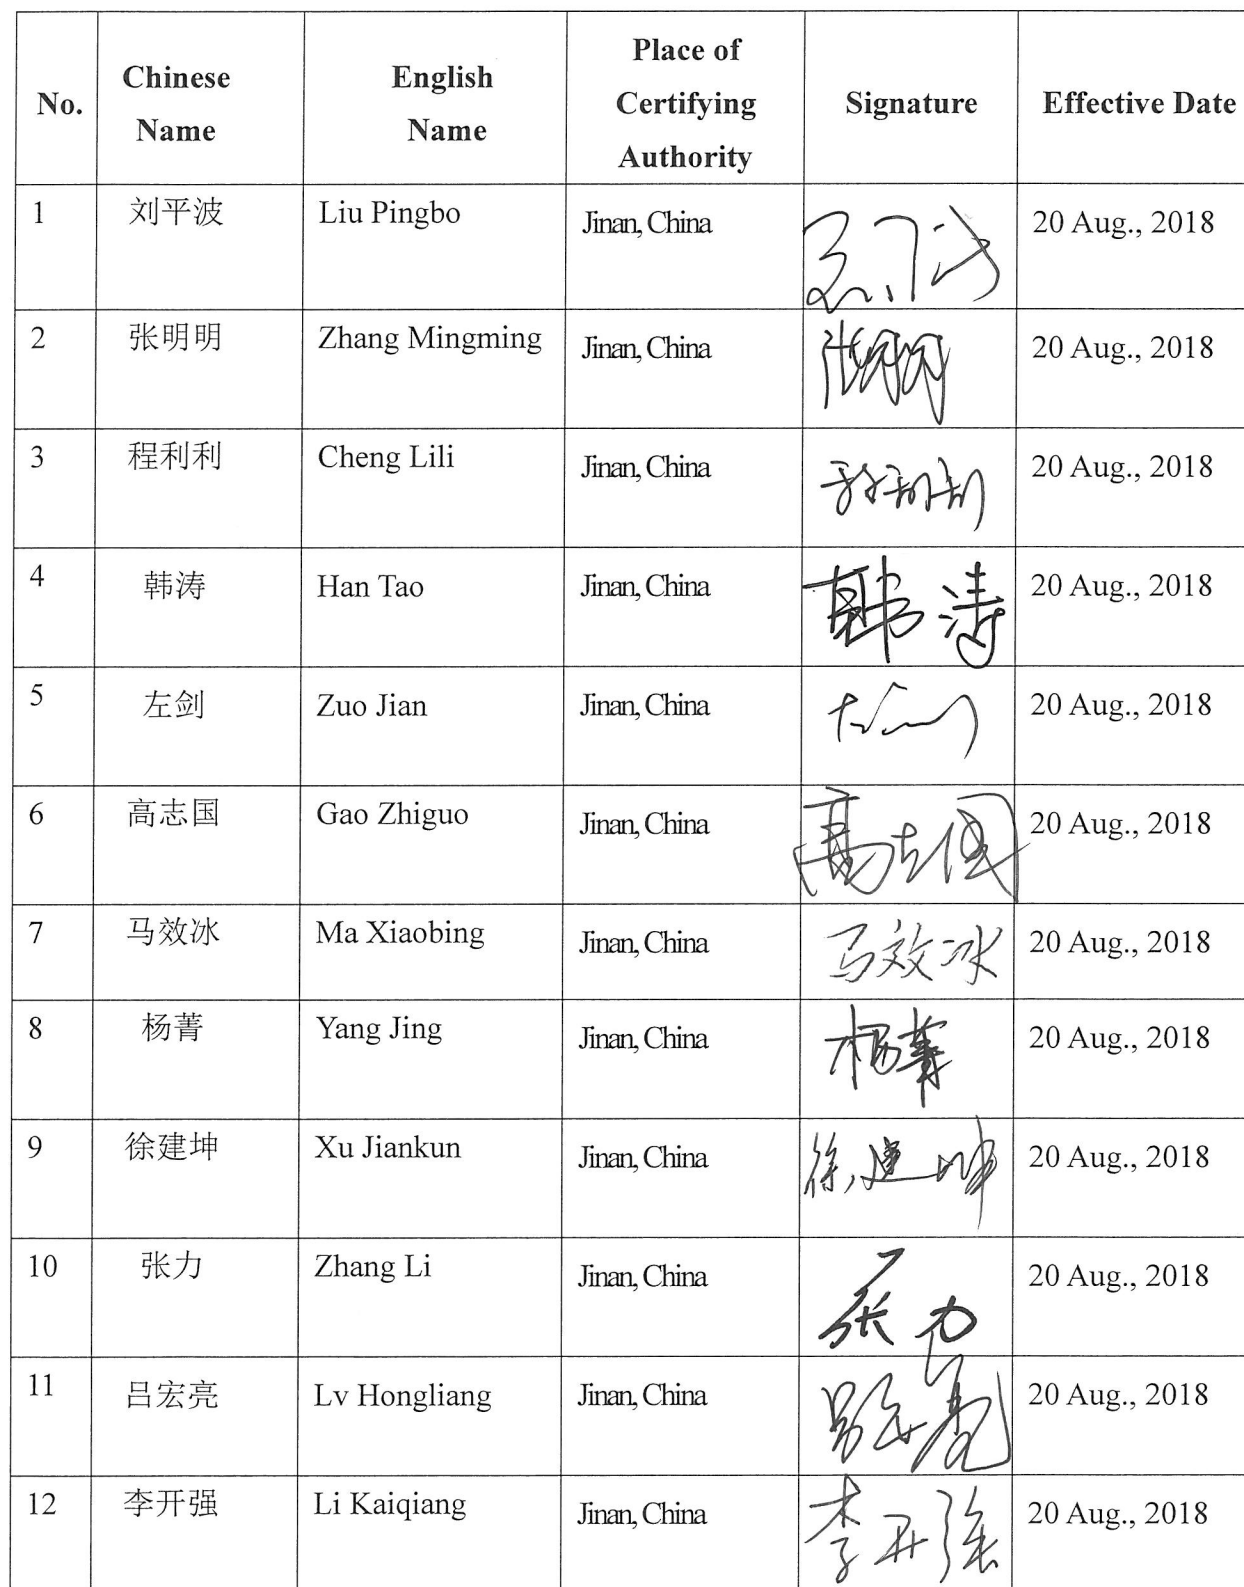 No.
Chinese
Name
English
Name
Place of
Certifying
Authority
Signature
Effective Date
1 刘平波 Liu Pingbo Jinan, China 20 Aug., 2018
2 张明明 Zhang Mingming Jinan, China 张明明 20 Aug., 2018
3 程利利 Cheng Lili Jinan, China 程利利 20 Aug., 2018
4 韩涛 Han Tao Jinan, China 韩涛 20 Aug., 2018
5 左剑 Zuo Jian Jinan, China 左剑 20 Aug., 2018
6 高志国 Gao Zhiguo Jinan, China 高志国 20 Aug., 2018
7 马效冰 Ma Xiaobing Jinan, China 马效冰 20 Aug., 2018
8 杨菁 Yang Jing Jinan, China 杨菁 20 Aug., 2018
9 徐建坤 Xu Jiankun Jinan, China 徐建坤 20 Aug., 2018
10 张力 Zhang Li Jinan, China 张力 20 Aug., 2018
11 吕宏亮 Lv Hongliang Jinan, China 吕宏亮 20 Aug., 2018
12 李开强 Li Kaiqiang Jinan, China 李开强 20 Aug., 2018